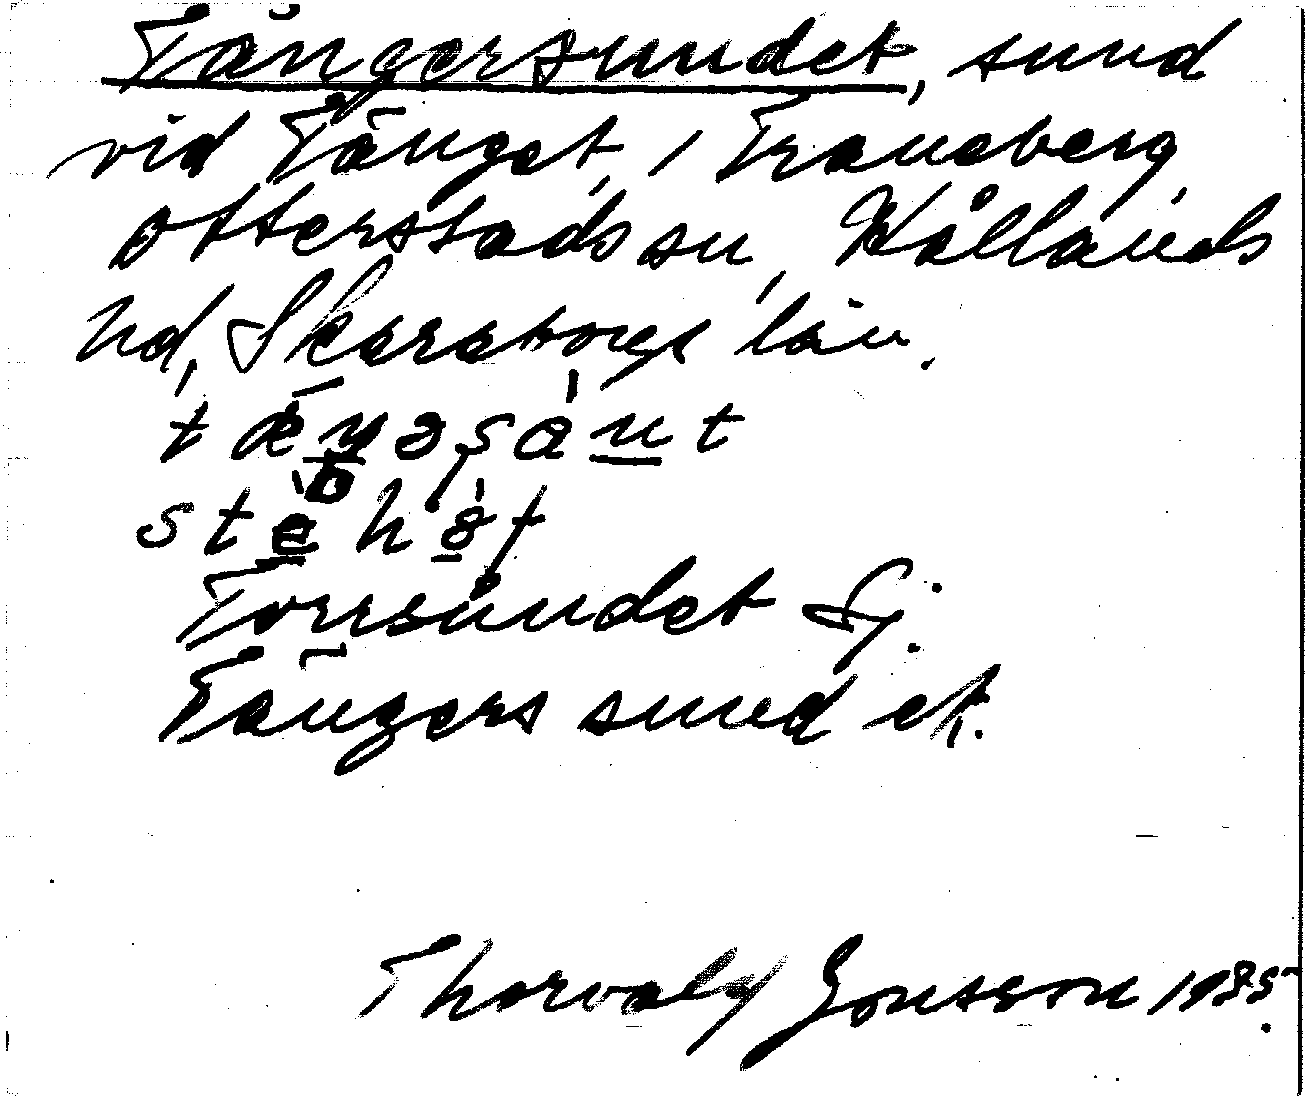 Tångersundet, sund
vid Tånget, i Traneberg,
Otterstads sn, Kållands
hd, Skaraborgs län.
Torrsundet Gj:
Tångers sund ek.
Thorvald Jonsson 1985